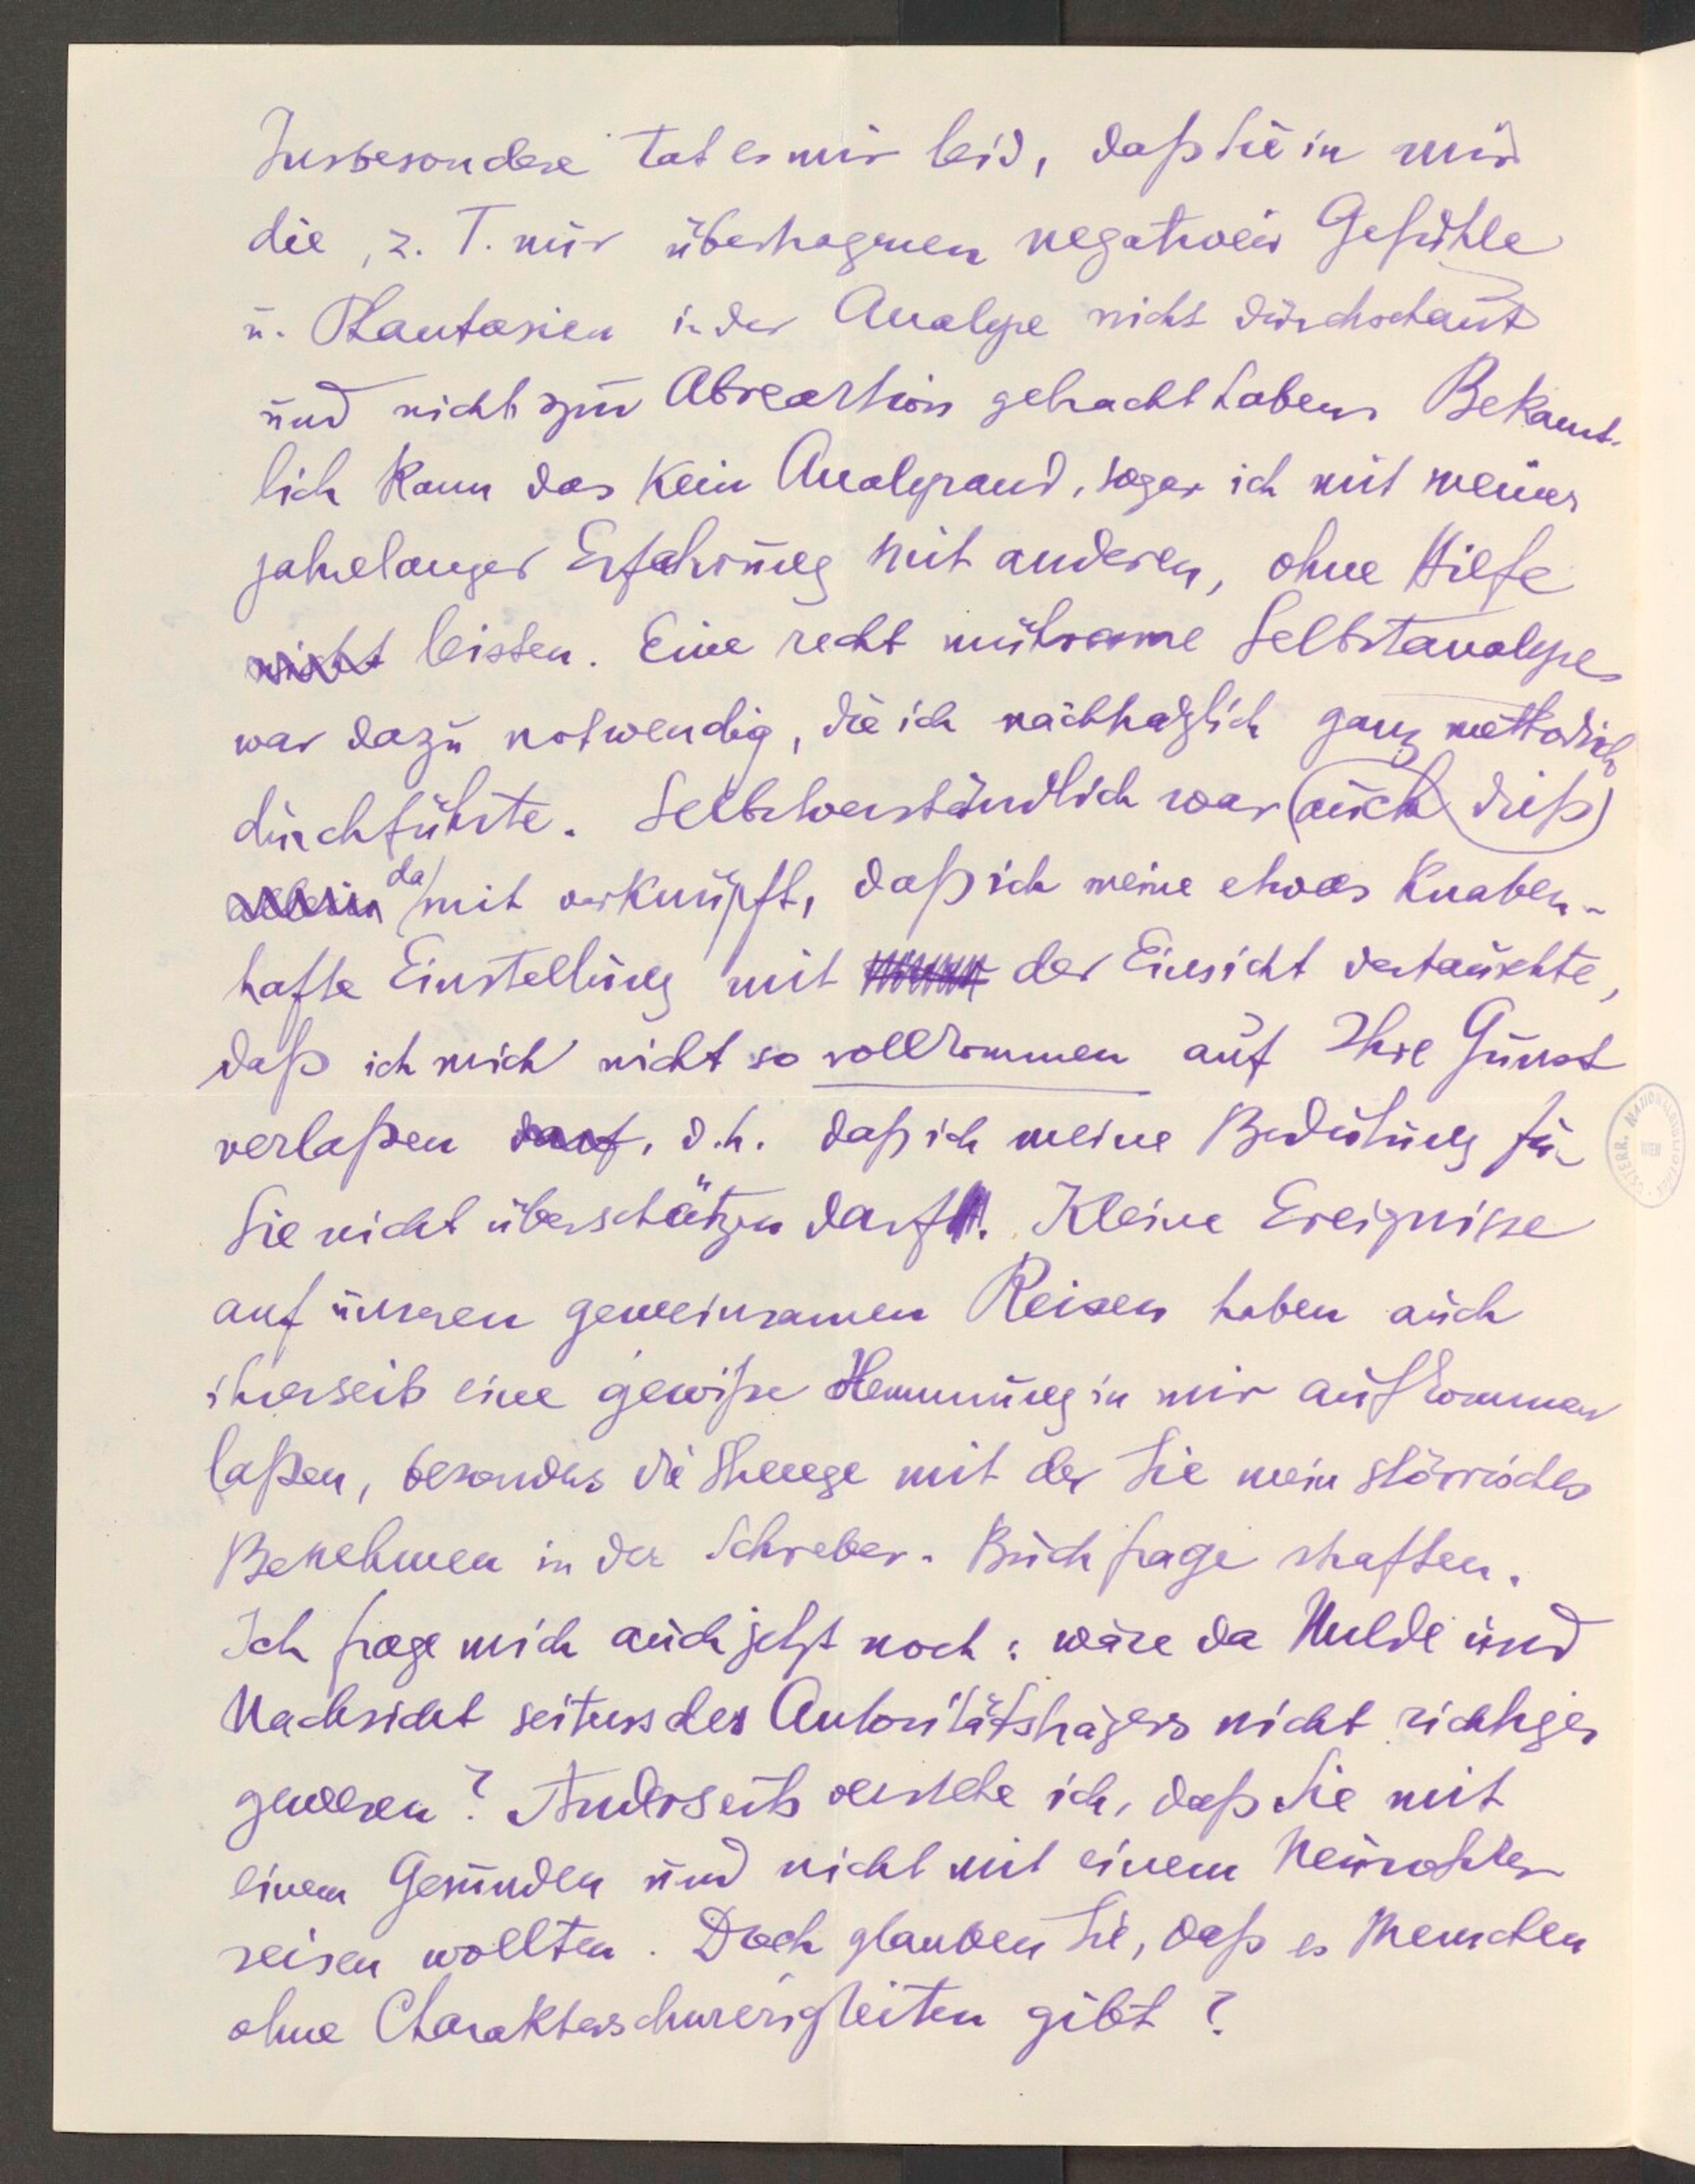 Insbesondere tat es mir leid, daß Sie in mir
die, z. T. nur übertragenen negativen Gefühle
u. Phantasien in der Analyse nicht durchschaut
und nicht zur Abreaktion gebracht haben. Bekannt-
lich kann das kein Analysand, sogar ich mit meiner
jahrelanger Erfahrung mit anderen, ohne Hilfe
nicht leisten. Eine recht mühsame Selbstanalyse
war dazu notwendig, die ich nachträglich ganz methodisch
durchführte. Selbstverständlich war (auch dieß)
allein da/mit verknüpft, daß ich meine etwas knaben-
hafte Einstellung mit der Einsicht vertauschte,
daß ich mich nicht so vollkommen auf Ihre Gunst
verlaßen darf, d.h. daß ich meine Bedeutung für
Sie nicht überschätzen darf. Kleine Ereigniße
auf unseren gemeinsamen Reisen haben auch
ihrerseits eine gewiße Hemmung in mir aufkommen
laßen, besonders die Strenge mit der Sie mein störrisches
Benehmen in der Schreber-Buchfrage straften.
Ich frage mich auch jetzt noch: wäre da Milde und
Nachsicht seitens des Autoritätsträgers nicht richtiger
gewesen? Anderseits verstehe ich, daß Sie mit
einem Gesunden und nicht mit einem Neurotiker
reisen wollten. Doch glauben Sie, daß es Menschen
ohne Charakterschwierigkeiten gibt?
ÖSTERR. NATIONALBIBLIOTHEK
WIEN